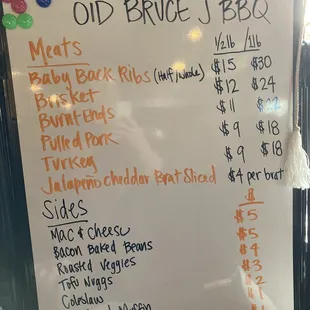 OlD BRUCE J BBQ
Meats 1/2lb / 1lb
Baby Back Ribs (Half/whole) $15 $30
Brisket $12 $24
Burnt Ends $11 $22
Pulled Pork $9 $18
Turkey $9 $18
Jalapeño Cheddar Brat Sliced $4 per brat
Sides $
Mac & Cheese $5
Bacon Baked Beans $5
Roasted Veggies $4
Tofu Nuggs $3
Coleslaw $2
Muffin